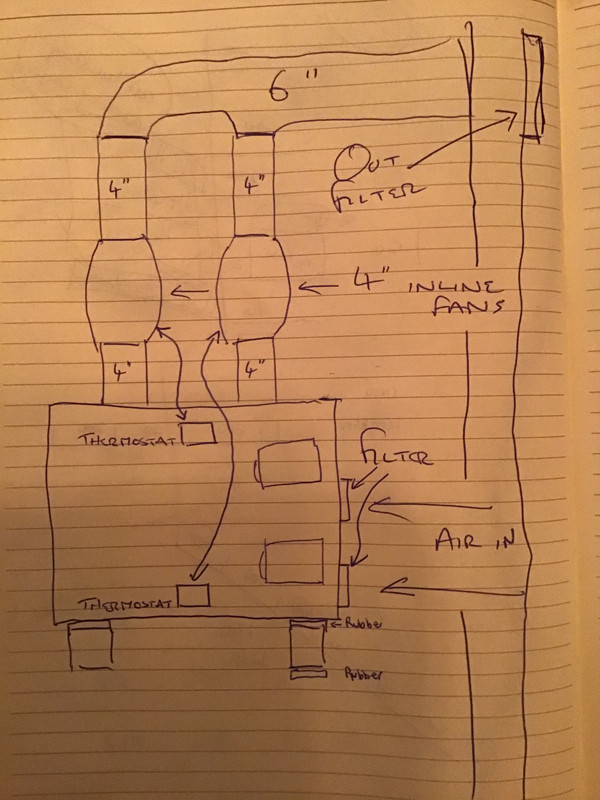 6"
OUT
FILTER
4" 4"
4" INLINE
FANS
4' 4"
THERMOSTAT
FILTER
AIR IN
THERMOSTAT
Rubber
Rubber